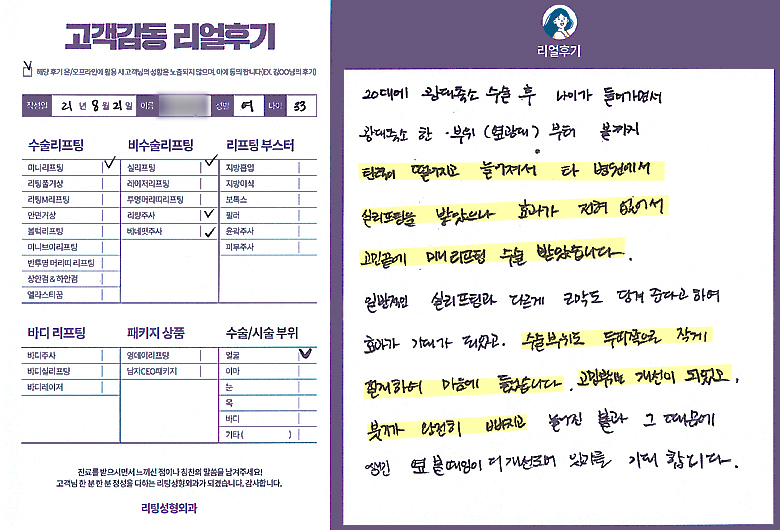 고객감동 리얼후기
해당 후기 온/오프라인에 활용 시 고객님의 성함은 노출되지 않으며, 이에 동의 합니다(EX. 김OO님의 후기)
작성일 21년 8월 21일 이름 성별 여 나이 33
수술리프팅
미니리프팅
리팅풀기상
리팅M리프팅
안면거상
볼럼리프팅
미니브이리프팅
반투명 머리띠 리프팅
상안검 & 하안검
엘라스티꿈
비수술리프팅
실리프팅
레이저리프팅
투명머리띠리프팅
리얀주사
바네핏주사
리프팅 부스터
지방흡입
지방이식
보톡스
필러
윤곽주사
피부주사
바디 리프팅
바디주사
바디실리프팅
바디레이저
패키지 상품
원데이리프팅
남자CEO패키지
수술/시술 부위
얼굴
이마
눈
목
바디
기타( )
진료를 받으시면서 느끼신 점이나 칭찬의 말씀을 남겨주세요!
고객님 한 분 한 분 정성을 다하는 리팅성형외과가 되겠습니다. 감사합니다.
리팅성형외과
리얼후기
20대에 광대축소 수술 후 나이가 들어가면서
광대축소 한 부위 (옆광대) 부터 볼까지
탄력이 떨어지고 늘어져서 타 병원에서
실리프팅을 받았으나 효과가 전혀 없어서
고민끝에 미니리프팅 수술 받았습니다.
일반적인 실리프팅과 다르게 근막도 당겨 준다고 하여
효과가 기대가 되었고. 수술부위도 두피쪽으로 작게
절개하여 마음에 들었습니다. 고민부위는 개선이 되었고,
붓기가 완전히 빠지고 늘어진 볼과 그 때문에
생긴 옆 볼패임이 더 개선되어 있기를 기대 합니다.